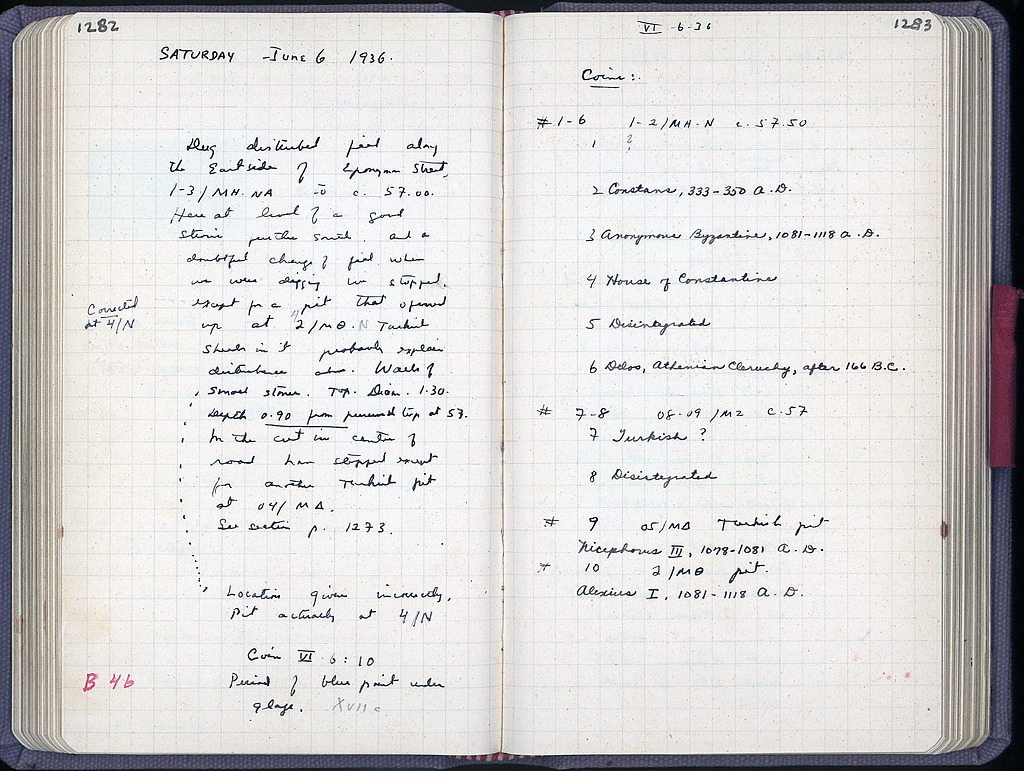 1282
SATURDAY - JUNE 6 1936.
Dug disturbed fill along
the East side of Eponymn Street,
1-3/ΜΗ.ΝΑ - c. 57.00.
Here at level of a good
to the south, and a
doubtful change of fill when
we were digging we stopped.
except for a pit that opened
up at 2/ΜΘ.Ν Turkish
sherds in it probably explain
disturbance above. Walls of
small stones. Top. Diam. 1.30.
Depth 0.90 from preserved top at 57.
Corrected
at 4/Ν
In the cut in center of
road have stopped except
for another Turkish pit
at 04/ΜΔ.
See section p. 1273.
Location given incorrectly.
Pit actually at 4/Ν
Coin VI 6:10
Period of blue paint under
glaze. XVII c
B 46
VI-6-36
1283
Coins:
#1-6 1-2/ΜΗ-Ν c. 57.50
1 ?
2 Constans, 333-350 A.D.
3 Anonymous Byzantine, 1081-1118 A.D.
4 House of Constantine
5 Disintegrated
6 Delos, Athenian Cleruchy, after 166 B.C.
# 7-8 08-09/ΜΖ c. 57
7 Turkish ?
8 Disintegrated
# 9 05/ΜΔ Turkish pit
Nicephorus III, 1078-1081 A.D.
# 10 2/ΜΘ pit.
Alexius I, 1081-1118 A.D.